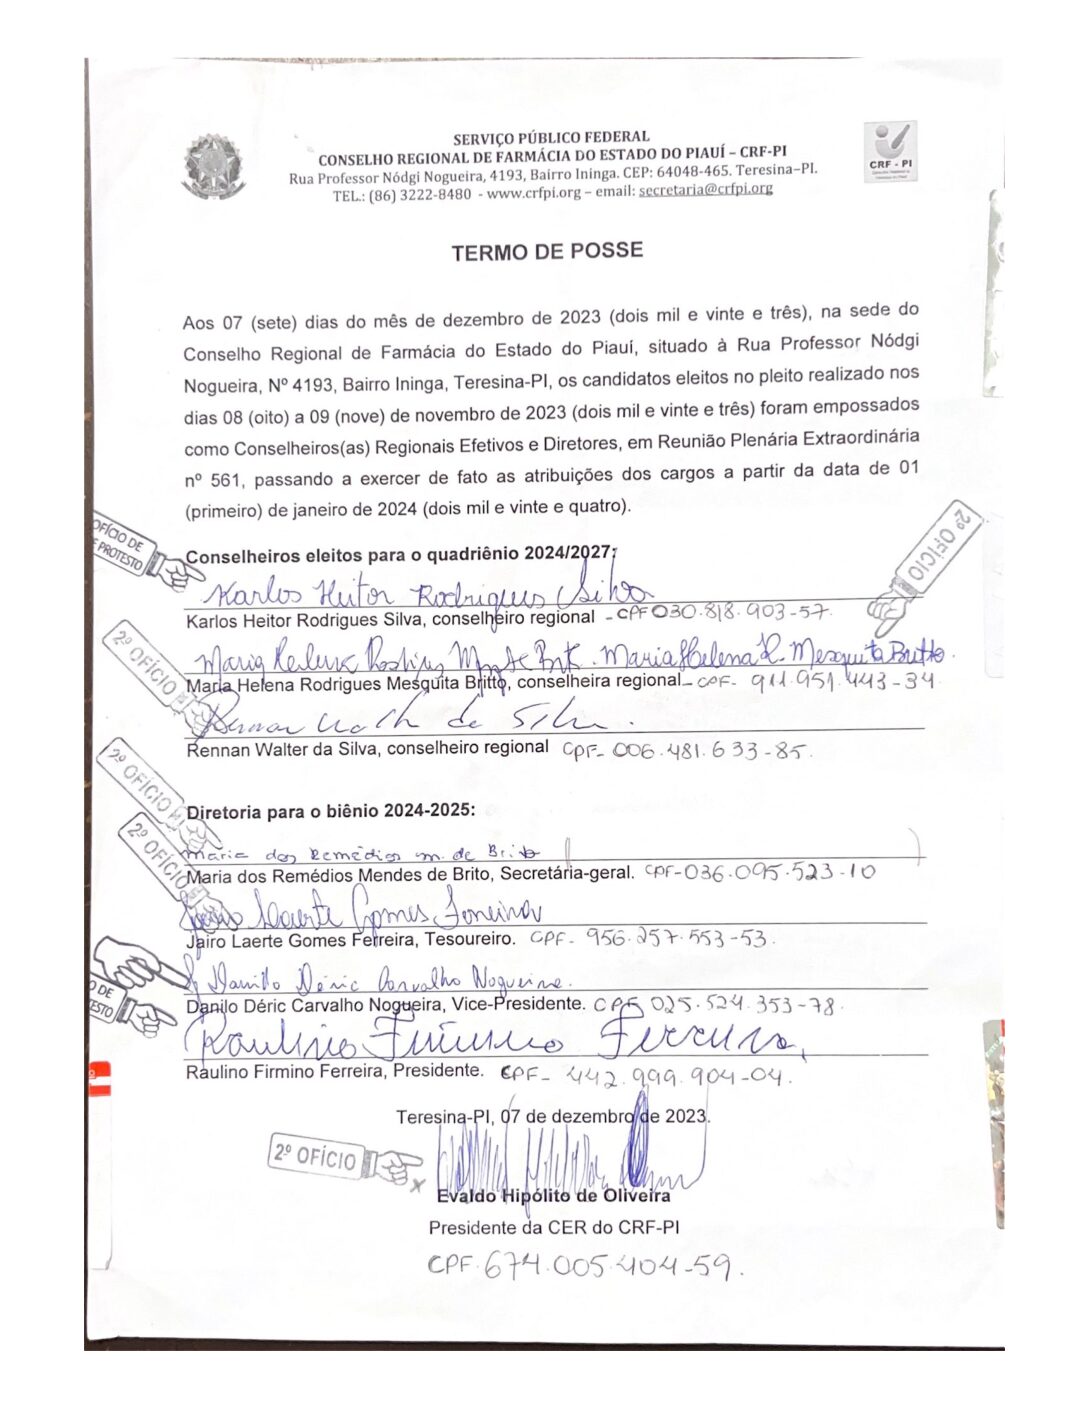 SERVIÇO PÚBLICO FEDERAL
CONSELHO REGIONAL DE FARMÁCIA DO ESTADO DO PIAUÍ – CRF-PI
Rua Professor Nódgi Nogueira, 4193, Bairro Ininga. CEP: 64048-465. Teresina–PI.
TEL.: (86) 3222-8480 - www.crfpi.org – email: secretaria@crfpi.org
CRF - PI
TERMO DE POSSE
Aos 07 (sete) dias do mês de dezembro de 2023 (dois mil e vinte e três), na sede do
Conselho Regional de Farmácia do Estado do Piauí, situado à Rua Professor Nódgi
Nogueira, Nº 4193, Bairro Ininga, Teresina-PI, os candidatos eleitos no pleito realizado nos
dias 08 (oito) a 09 (nove) de novembro de 2023 (dois mil e vinte e três) foram empossados
como Conselheiros(as) Regionais Efetivos e Diretores, em Reunião Plenária Extraordinária
nº 561, passando a exercer de fato as atribuições dos cargos a partir da data de 01
(primeiro) de janeiro de 2024 (dois mil e vinte e quatro).
OFÍCIO DE
PROTESTO
2º OFÍCIO
Conselheiros eleitos para o quadriênio 2024/2027:
Karlos Heitor Rodrigues Silva
Karlos Heitor Rodrigues Silva, conselheiro regional - CPF 030.818.903-57.
2º OFÍCIO
Maria Helena R. Mesquita Britto.
Maria Helena Rodrigues Mesquita Britto, conselheira regional - CPF- 911.951.443-34
Rennan da Silva.
Rennan Walter da Silva, conselheiro regional CPF- 006.481.633-85.
2º OFÍCIO
Diretoria para o biênio 2024-2025:
2º OFÍCIO
Maria dos Remédios M. de Brito
Maria dos Remédios Mendes de Brito, Secretária-geral. CPF-036.095.523-10
Jairo Laerte Gomes Ferreira
Jairo Laerte Gomes Ferreira, Tesoureiro. CPF- 956.257.553-53.
Danilo Déric Carvalho Nogueira.
O DE
ESTO
Danilo Déric Carvalho Nogueira, Vice-Presidente. CPF 025.524.353-78.
Raulino Firmino Ferreira,
Raulino Firmino Ferreira, Presidente. CPF- 442.999.904-04.
Teresina-PI, 07 de dezembro de 2023.
2º OFÍCIO
Evaldo Hipólito de Oliveira
Presidente da CER do CRF-PI
CPF.674.005.404-59.